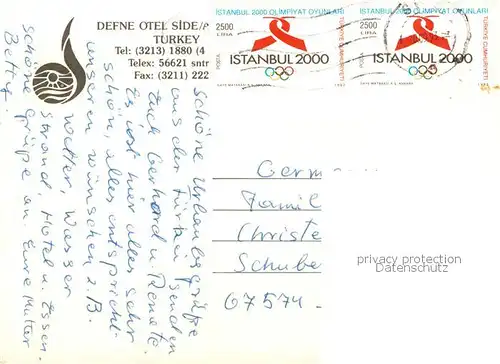 DEFNE OTEL SİDE/
TURKEY
Tel: (3213) 1880 (4
Telex: 56621 sntr
Fax: (3211) 222
2500
LİRA
İSTANBUL 2000 OLİMPİYAT OYUNLARI
İSTANBUL 2000
TÜRKİYE CUMHURİYETİ
2500
LİRA
İSTANBUL 2000 OLİMPİYAT OYUNLARI
İSTANBUL 2000
TÜRKİYE CUMHURİYETİ
Schöne Urlaubsgrüße
aus der Türkei senden
Euch Gerhard u. Renate
Es ist hier alles sehr
schön, alles entspricht
unseren Wünschen z.B.
Wetter, Wasser
Strand, Hotel u. Essen
schöne Grüße an Eure Mutter
Betty
Germ
Famil
Christe
Schube
07574
privacy protection
Datenschutz